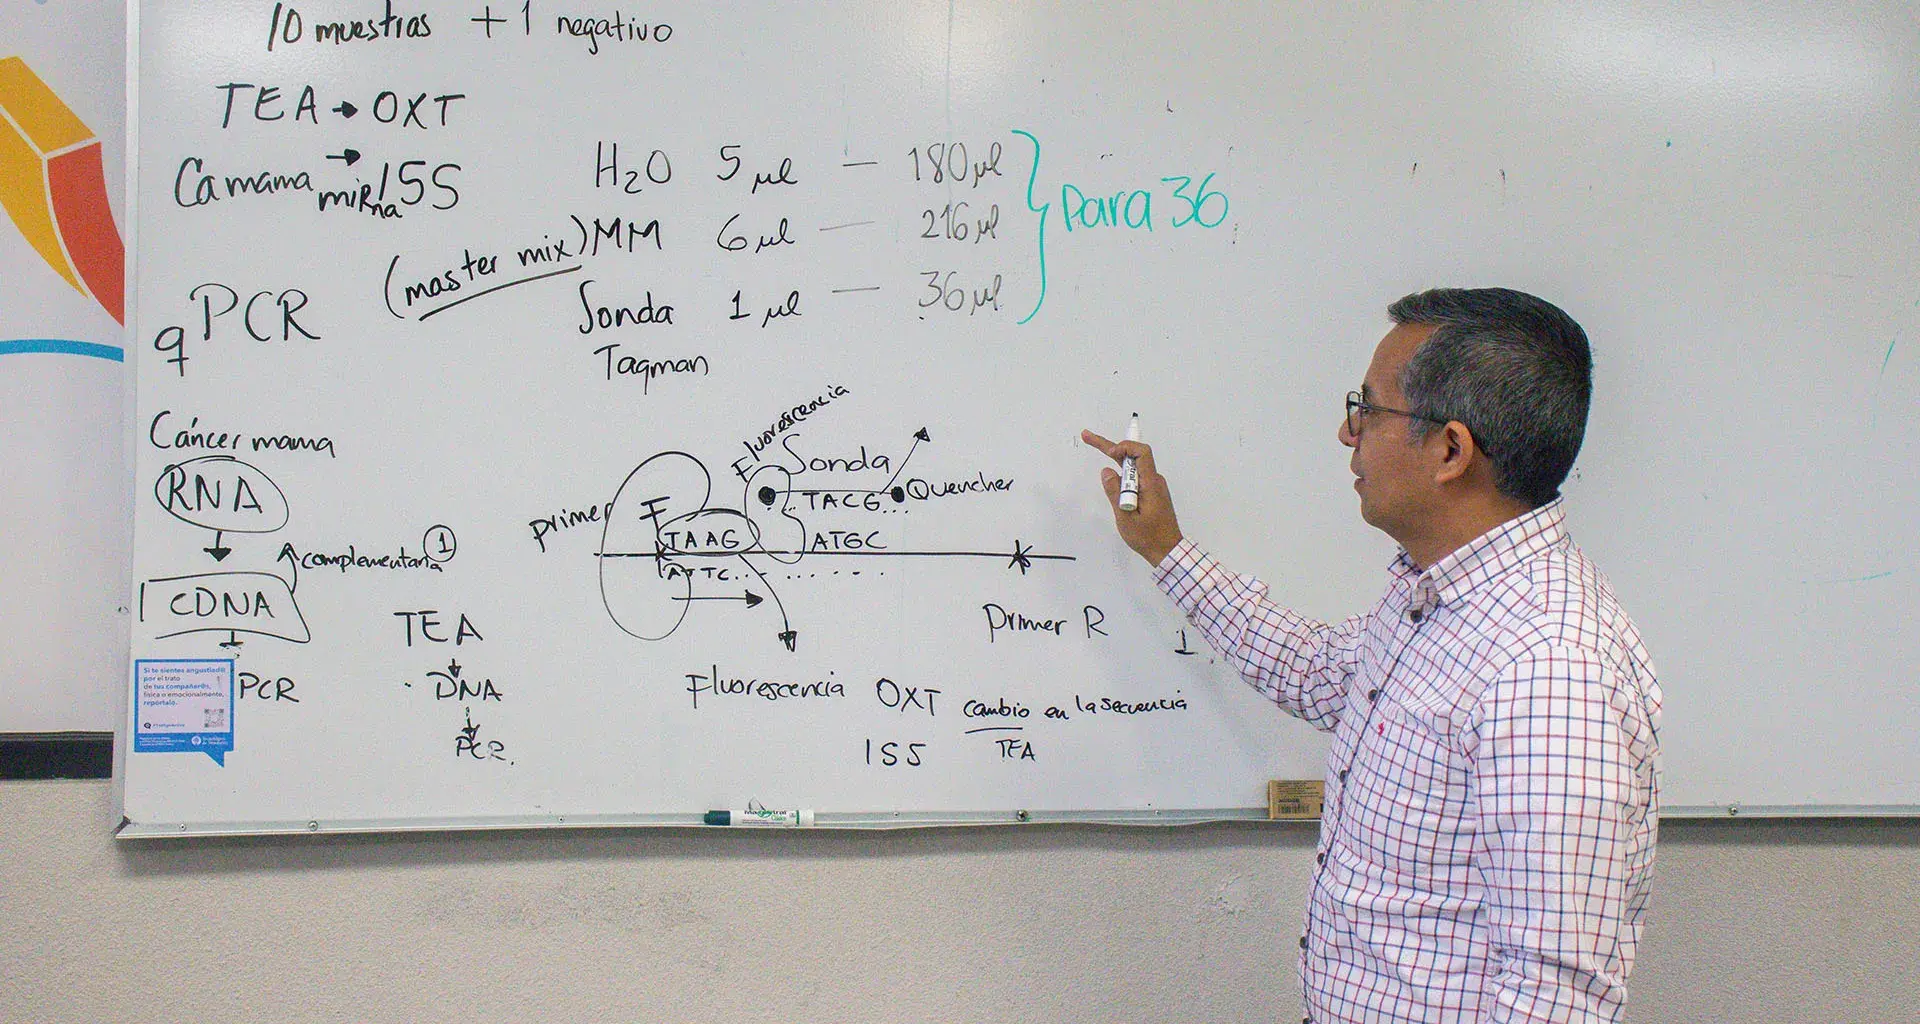 10 muestras + 1 negativo
TEA → OXT
Ca mama → miRna 155
H2O 5 µl — 180 µl
(master mix) MM 6 µl — 216 µl
Sonda 1 µl — 36 µl
Taqman
Para 36
qPCR
Cáncer mama
RNA
complementaria 1
CDNA
PCR
TEA
DNA
PCR.
Fluorescencia
Sonda
Quencher
...TACG...
primer F
TAAG
ATGC
ATTC...
Primer R
1
Fluorescencia
OXT cambio en la secuencia
155 TEA
Si te sientes angustiad@
por el trato
de tus compañer@s,
física o emocionalmente,
repórtalo.
magistral